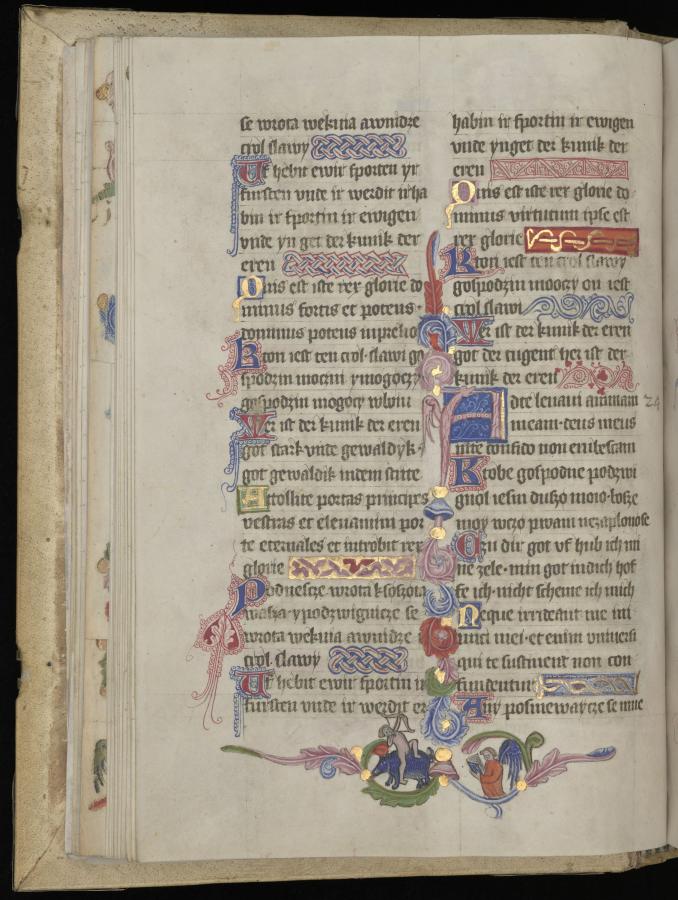 se wrota wekuia awnidze
crol slawy
Uf hebit ewir sporten yr
fursten vnde ir werdit irha
bin ir sportin ir ewigen
vnde yn get der kunik der
eren
Quis est iste rex glorie do
minus fortis et potens
dominus potens in prelio
Kton iest ten crol slawi go
spodzin mocni ymogoczy
gospodzin mogocy wboiu
Wer ist der kunik der eren
got stark vnde gewaldyk
got gewaldik indem strite
Attollite portas principes
vestras et eleuamini por
te eternales et introibit rex
glorie
Podnescze wrota ksyszota
wasza ypodzwignicze se
wrota wekuia awnidze
crol slawy
Uf hebit ewir sportin ir
fursten vnde ir werdit er
habin ir sportin ir ewigen
vnde ynget der kunik der
eren
Quis est iste rex glorie do
minus virtutum ipse est
rex glorie
Kton iest ten crol slawy
gospodzin moczy on iest
crol slawi
Wer ist der kunik der eren
got der tugent her ist der
kunik der eren
Ad te leuaui animam 24
meam deus meus
in te confido non erubescam
K tobe gospodne podzwi
gnol iesm duszo moio bosze
moy wczo pwam nezaplonose
Czu dir got vf hub ich mi
ne zele min got indich hof
fe ich nicht scheme ich mich
Neque irrideant me ini
mici mei et enim vniuersi
qui te sustinent non con
fundentur
Any posmewaycze se mne